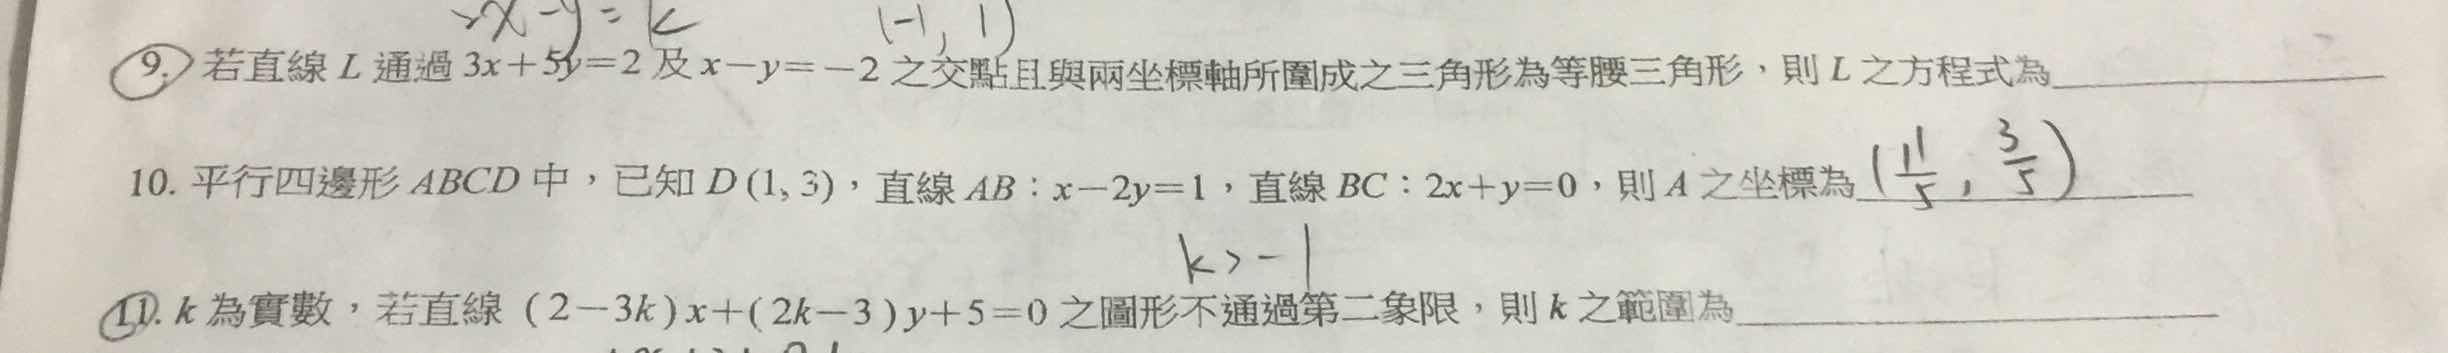 x-y=k (-1, 1)
9. 若直線 L 通過 3x+5y=2 及 x-y=-2 之交點且與兩坐標軸所圍成之三角形為等腰三角形，則 L 之方程式為
10. 平行四邊形 ABCD 中，已知 D (1, 3)，直線 AB：x-2y=1，直線 BC：2x+y=0，則 A 之坐標為 (11/5, 3/5)
k>-1
11. k 為實數，若直線 (2-3k)x+(2k-3)y+5=0 之圖形不通過第二象限，則 k 之範圍為